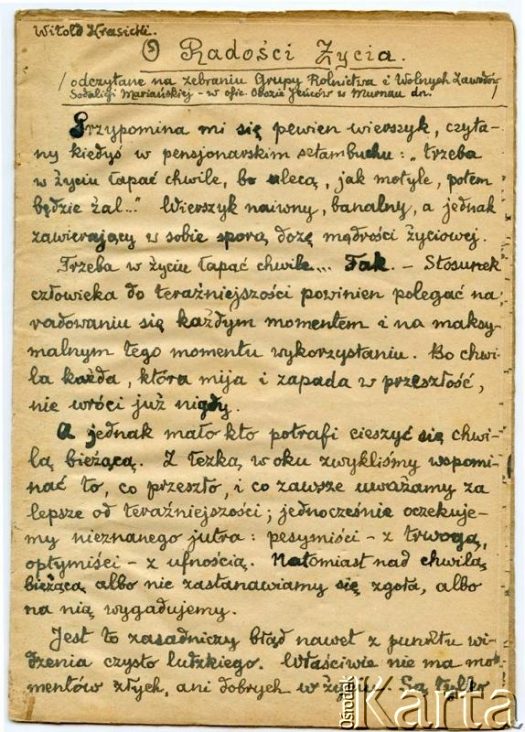 Witold Krasicki.
O Radości Życia.
/odczytane na zebraniu Grupy Rolnictwa i Wolnych Zawodów
Sodalicji Mariańskiej - w ofic. Obozie Jeńców w Murnau dn. /
Przypomina mi się pewien wierszyk, czyta-
ny kiedyś w pensjonarskim sztambuchu: „trzeba
w życiu łapać chwile, bo ulecą, jak motyle, potem
będzie żal..." Wierszyk naiwny, banalny, a jednak
zawierający w sobie sporą dozę mądrości życiowej.
Trzeba w życiu łapać chwile.... Tak. - Stosunek
człowieka do teraźniejszości powinien polegać na
radowaniu się każdym momentem i na maksy-
malnym tego momentu wykorzystaniu. Bo chwi-
la każda, która mija i zapada w przeszłość,
nie wróci już nigdy.
A jednak mało kto potrafi cieszyć się chwi-
lą bieżącą. Z łezką w oku zwykliśmy wspomi-
nać to, co przeszło, i co zawsze uważamy za
lepsze od teraźniejszości; jednocześnie oczekuje-
my nieznanego jutra: pesymiści - z trwogą,
optymiści - z ufnością. Natomiast nad chwilą
bieżącą albo nie zastanawiamy się zgoła, albo
na nią wygadujemy.
Jest to zasadniczy błąd nawet z punktu wi-
dzenia czysto ludzkiego. Właściwie nie ma mo-
mentów złych, ani dobrych w życiu. Są tylko
Ośrodek Karta